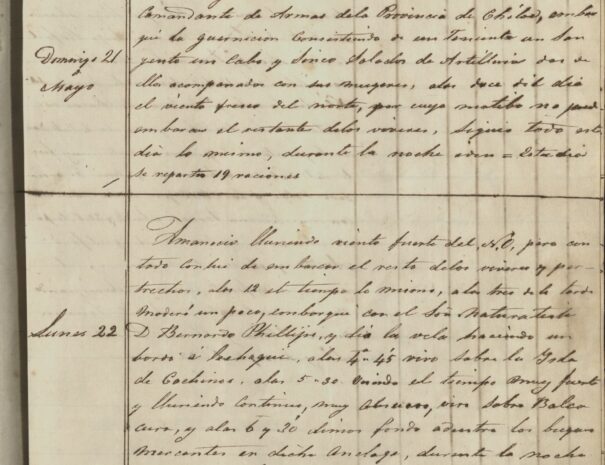 Comandante de Armas dela Provincia de Chiloé, embar
qué la guarnicion Consistiendo de un Teniente un Sar
Domingo 21
gento un Cabo y Sinco Soldados de Artilleria dos de
Mayo
ellos acompañados con sus mugeres, alas doce del dia
el viento fresco del norte, por cuyo motibo no pude
embarcar el restante delos viveres, Siguio todo este
dia lo mismo, durante la noche idem = Este dia
se repartio 19 raciones
Amanecio lluviendo viento fuerte del N.O, pero con
todo conclui de embarcar el resto delos viveres y per
trechos, alas 12 el tiempo lo mismo, alas tres de la tarde
Lunes 22
moderó un poco, embarqué con el Sor Naturalista
D Bernardo Phillipi, y dio la vela haciendo un
bordo a Lechagua, alas 4"45 viro sobre la Ysla
de Cochinos, alas 5"30 Viendo el tiempo muy fuerte
y lluviendo Continuo, muy obscuro, viro sobre Balca
cura, y alas 6 y 30 dimos fondo adentro los buques
Mercantes en dicho Anclage, durante la noche